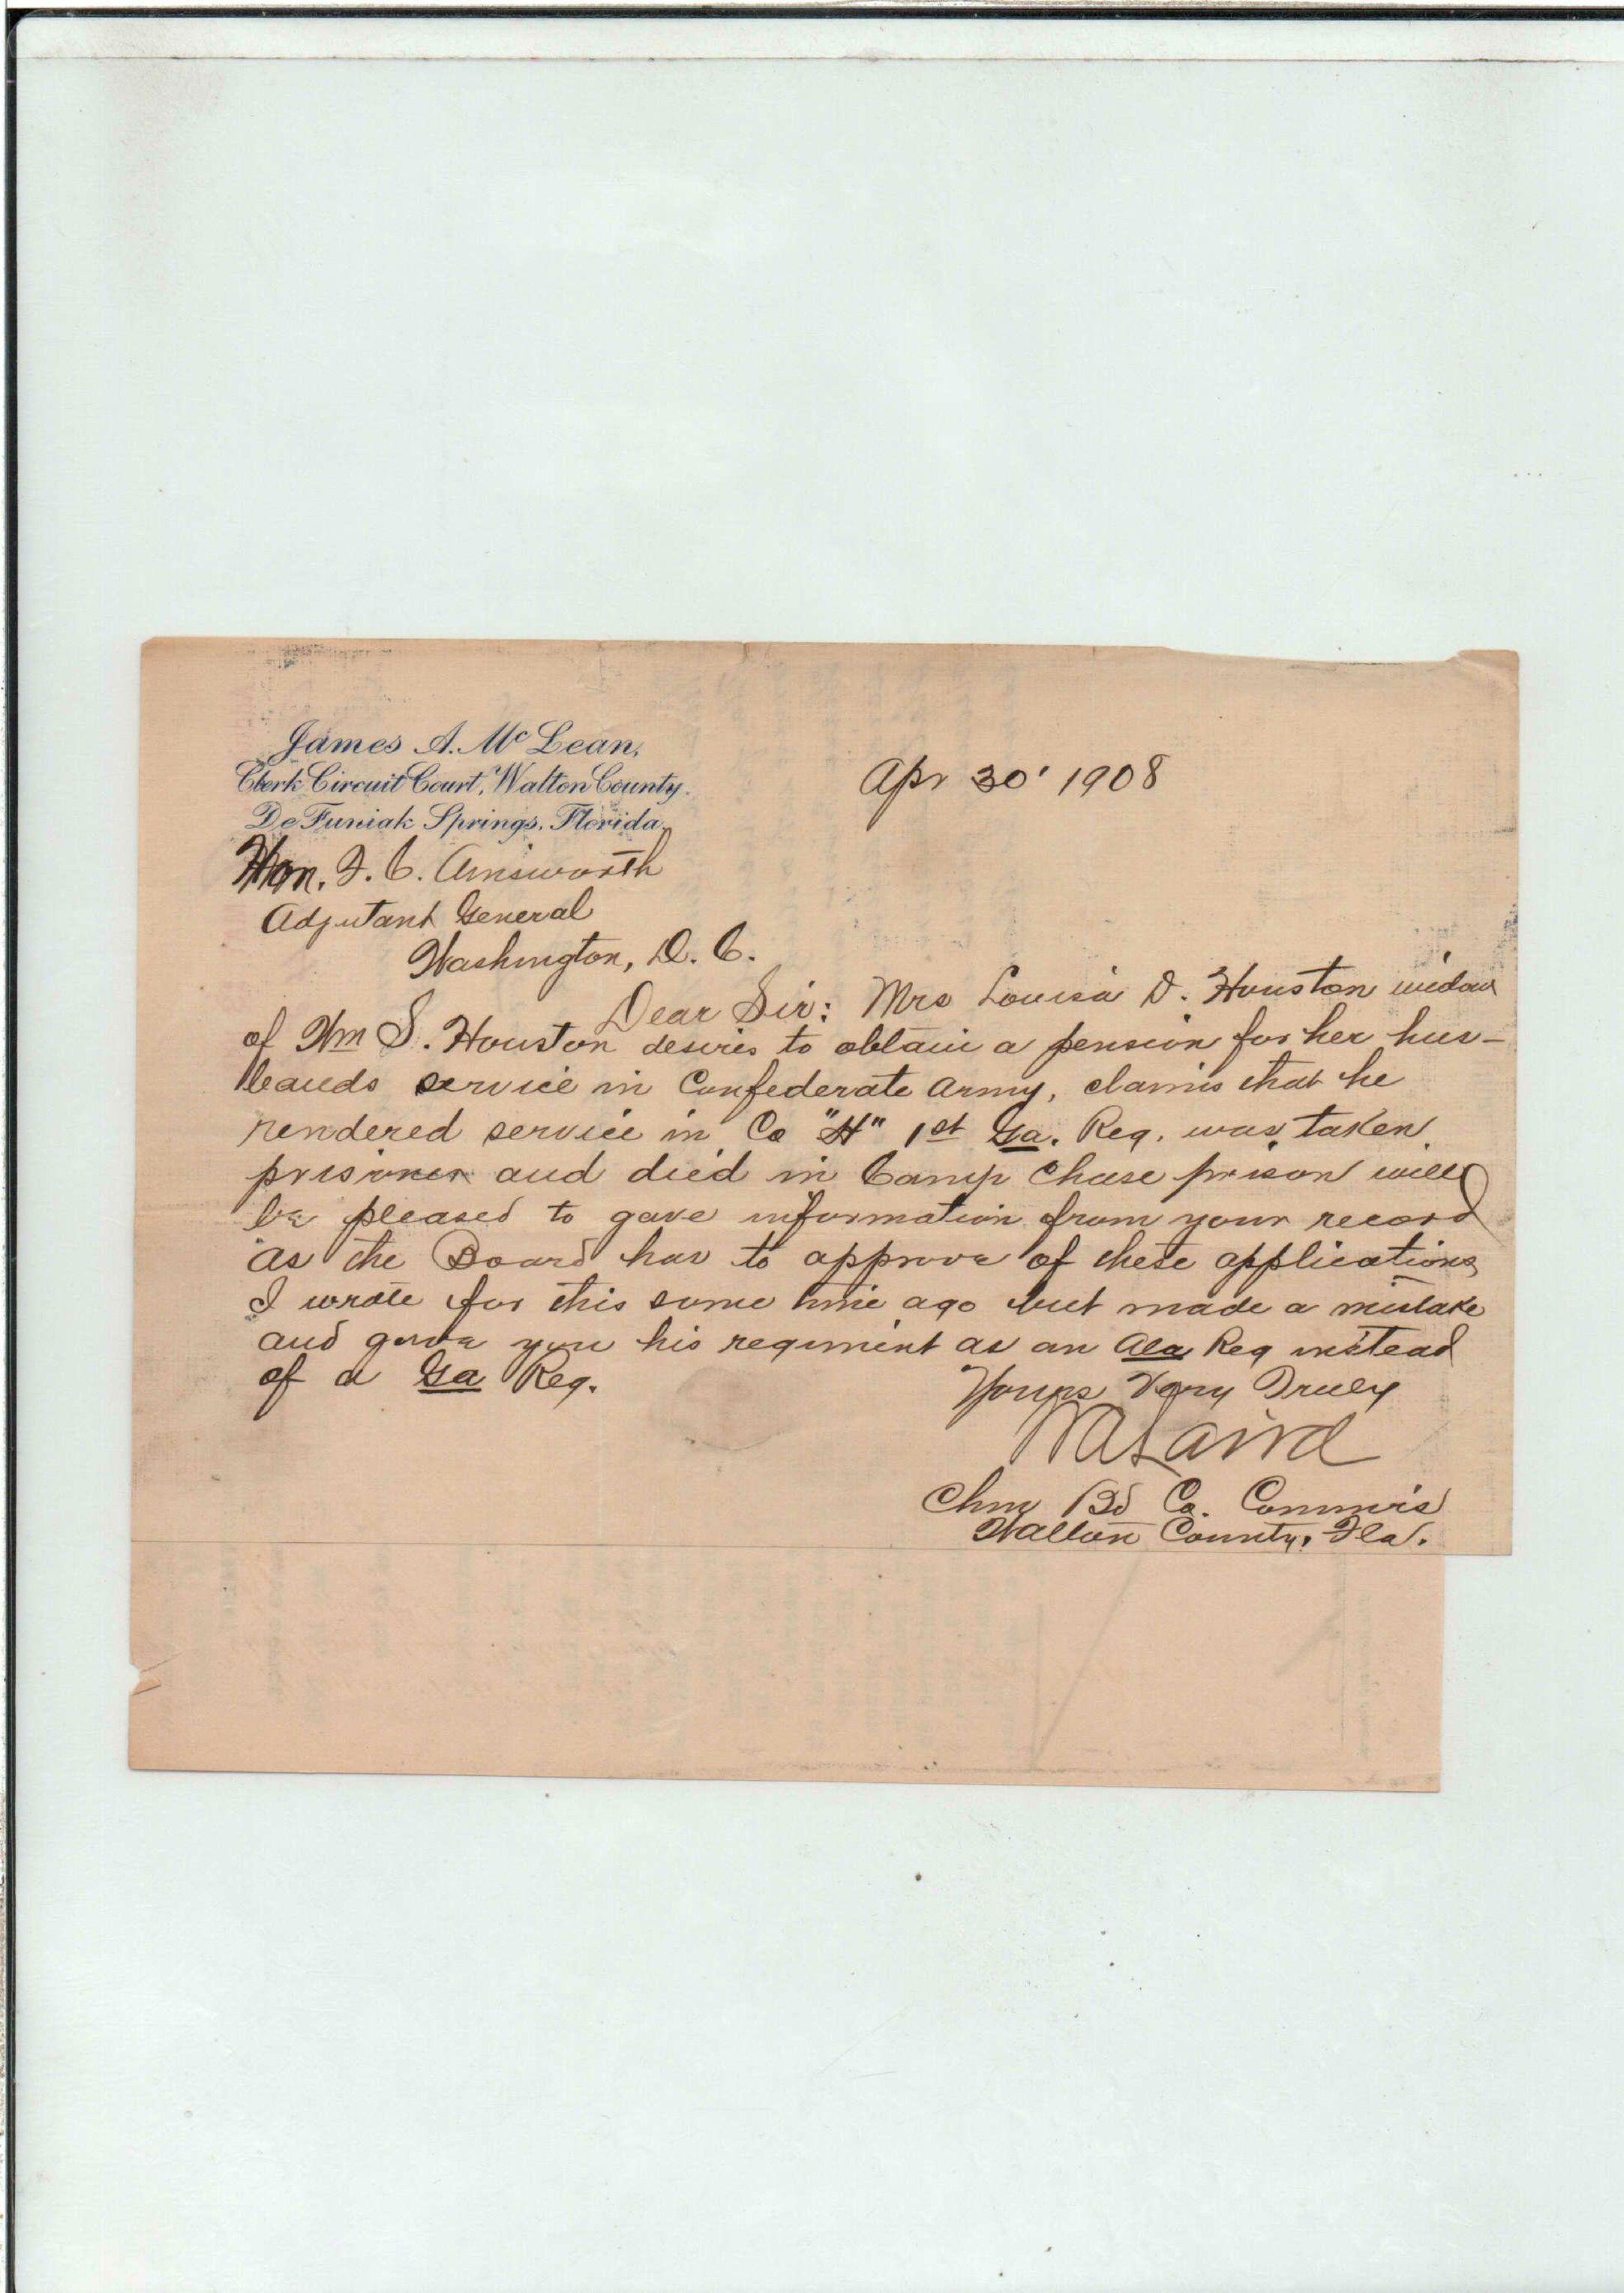 James A. McLean,
Clerk Circuit Court, Walton County.
De Funiak Springs, Florida.
Apr 30' 1908
Hon. F. C. Ainsworth
Adjutant General
Washington, D. C.
Dear Sir: Mrs Louisa D. Houston widow
of Wm S. Houston desires to obtain a pension for her hus-
bands service in Confederate Army, claims that he
rendered service in Co "H" 1st Ga. Reg. was taken
prisoner and died in Camp Chase prison will
be pleased to gave information from your record
as the Board has to approve of these applications
I wrote for this some time ago but made a mistake
and gave you his regiment as an Ala Reg instead
of a Ga Reg.
Yours Very Truly
WALaird
Chm Bd Co. Commrs
Walton County, Fla.